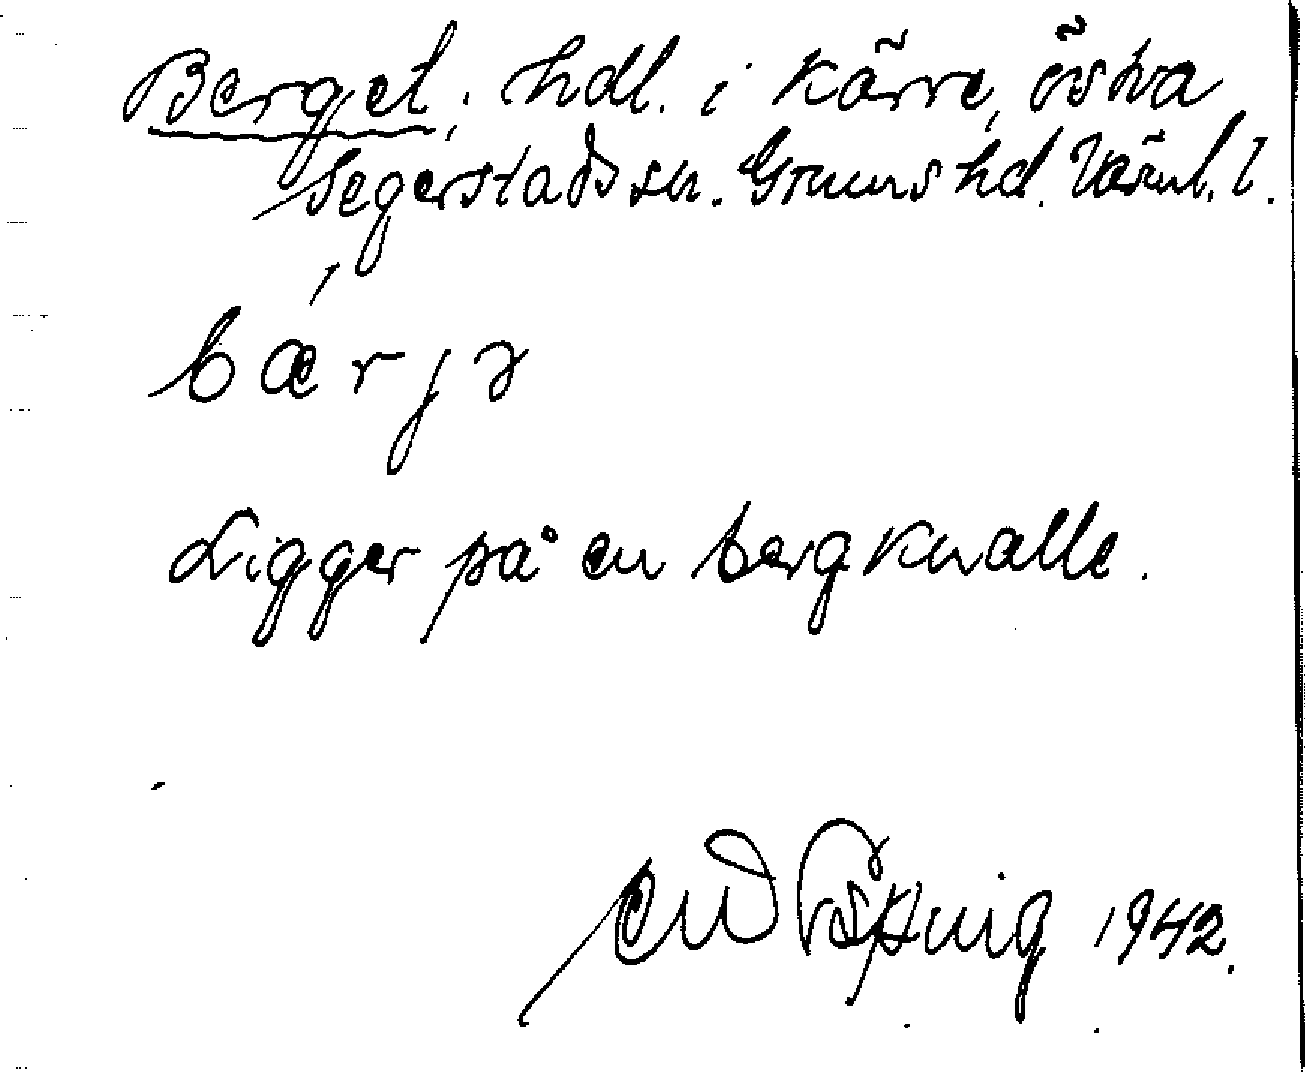 Berget; hdl. i Kärre, östra
Segerstads sn. Grums hd. Värml. l.
bærjə
Ligger på en bergknalle.
1942.